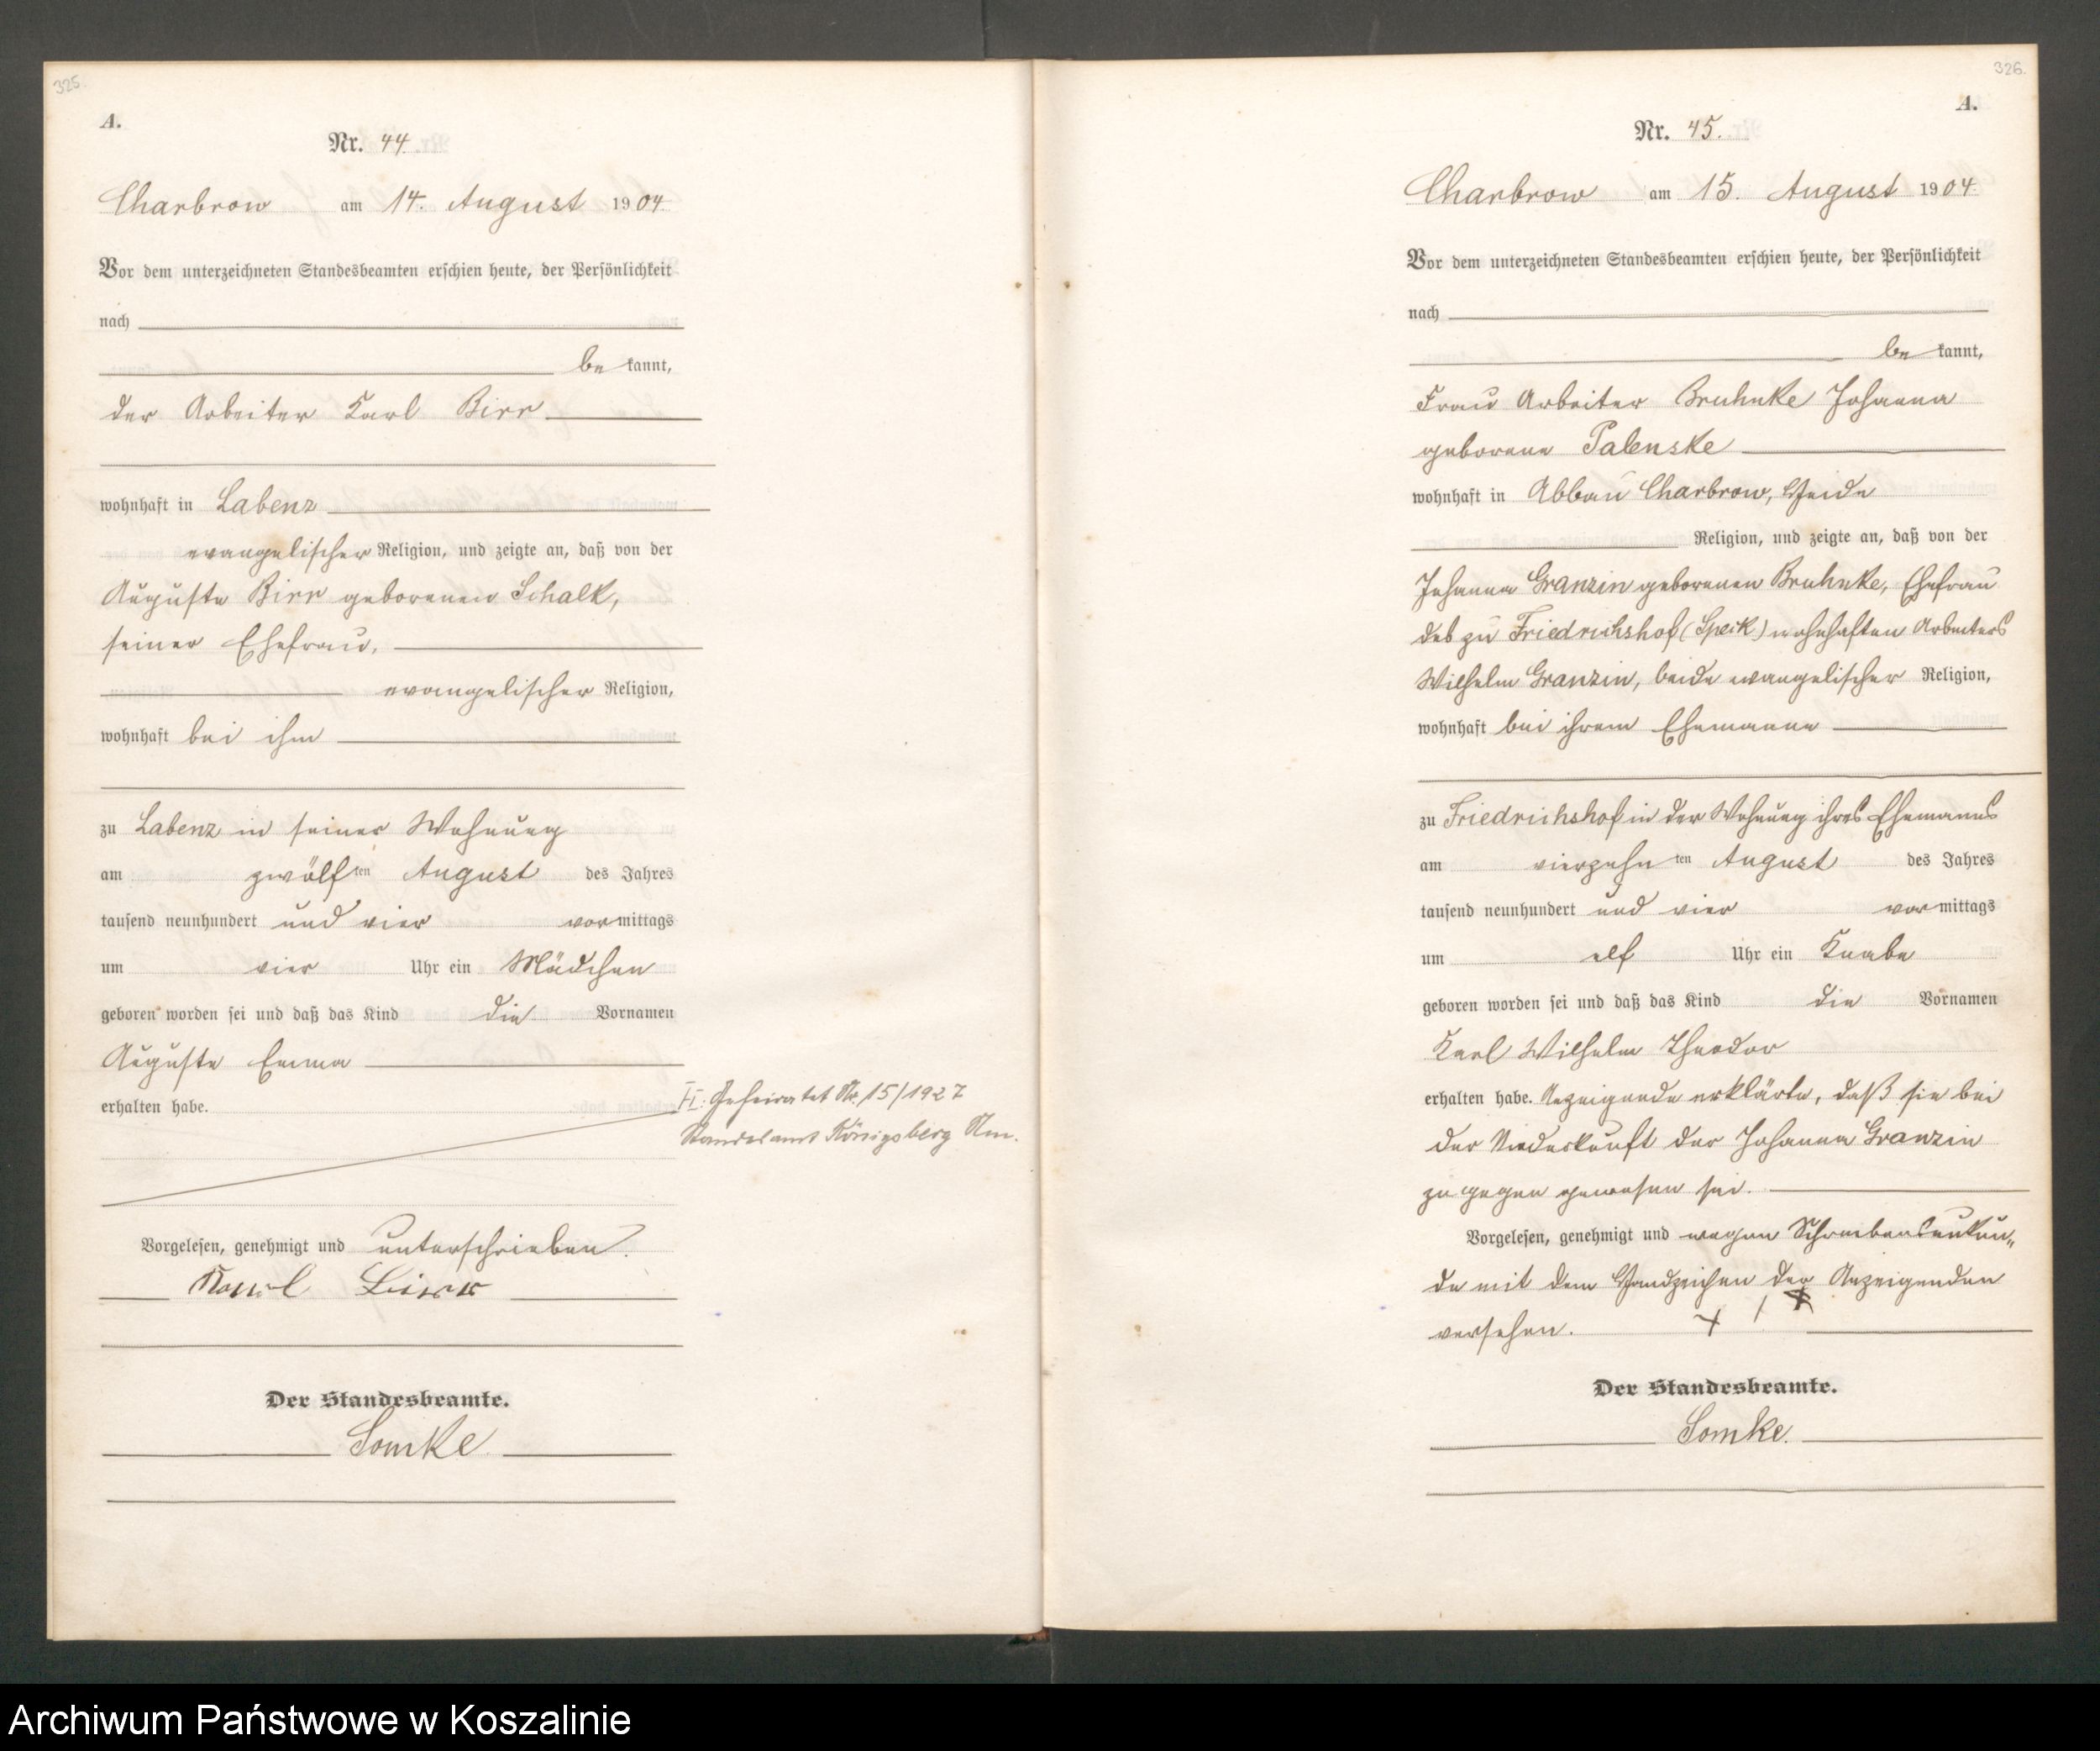 325.
A.
Nr. 44.
Charbrow am 14. August 1904.
Vor dem unterzeichneten Standesbeamten erschien heute, der Persönlichkeit
nach
be kannt,
der Arbeiter Karl Birr
wohnhaft in Labenz
evangelischer Religion, und zeigte an, daß von der
Auguste Birr geborenen Schalk,
seiner Ehefrau,
evangelischer Religion,
wohnhaft bei ihm
zu Labenz in seiner Wohnung
am zwölf ten August des Jahres
tausend neunhundert und vier vormittags
um vier Uhr ein Mädchen
geboren worden sei und daß das Kind die Vornamen
Auguste Emma
erhalten habe.
II. Geheiratet Nr. 15/1927
Standesamt Königsberg Nm.
Vorgelesen, genehmigt und unterschrieben.
Karl Birr
Der Standesbeamte.
Somke.
326.
A.
Nr. 45.
Charbrow am 15. August 1904.
Vor dem unterzeichneten Standesbeamten erschien heute, der Persönlichkeit
nach
be kannt,
Frau Arbeiter Bruhnke Johanna
geborene Palenske
wohnhaft in Abbau Charbrow, Heide
Religion, und zeigte an, daß von der
Johanna Granzin geborenen Bruhnke, Ehefrau
des zu Friedrichshof (Speck) wohnhaften Arbeiters
Wilhelm Granzin, beide evangelischer Religion,
wohnhaft bei ihrem Ehemanne
zu Friedrichshof in der Wohnung ihres Ehemanns
am vierzehn ten August des Jahres
tausend neunhundert und vier vormittags
um elf Uhr ein Knabe
geboren worden sei und daß das Kind die Vornamen
Karl Wilhelm Theodor
erhalten habe. Anzeigende erklärte, daß sie bei
der Niederkunft der Johanna Granzin
zugegen gewesen sei.
Vorgelesen, genehmigt und wegen Schreibensunkun„
de mit dem Handzeichen der Anzeigenden
versehen.
Der Standesbeamte.
Somke.
Archiwum Państwowe w Koszalinie